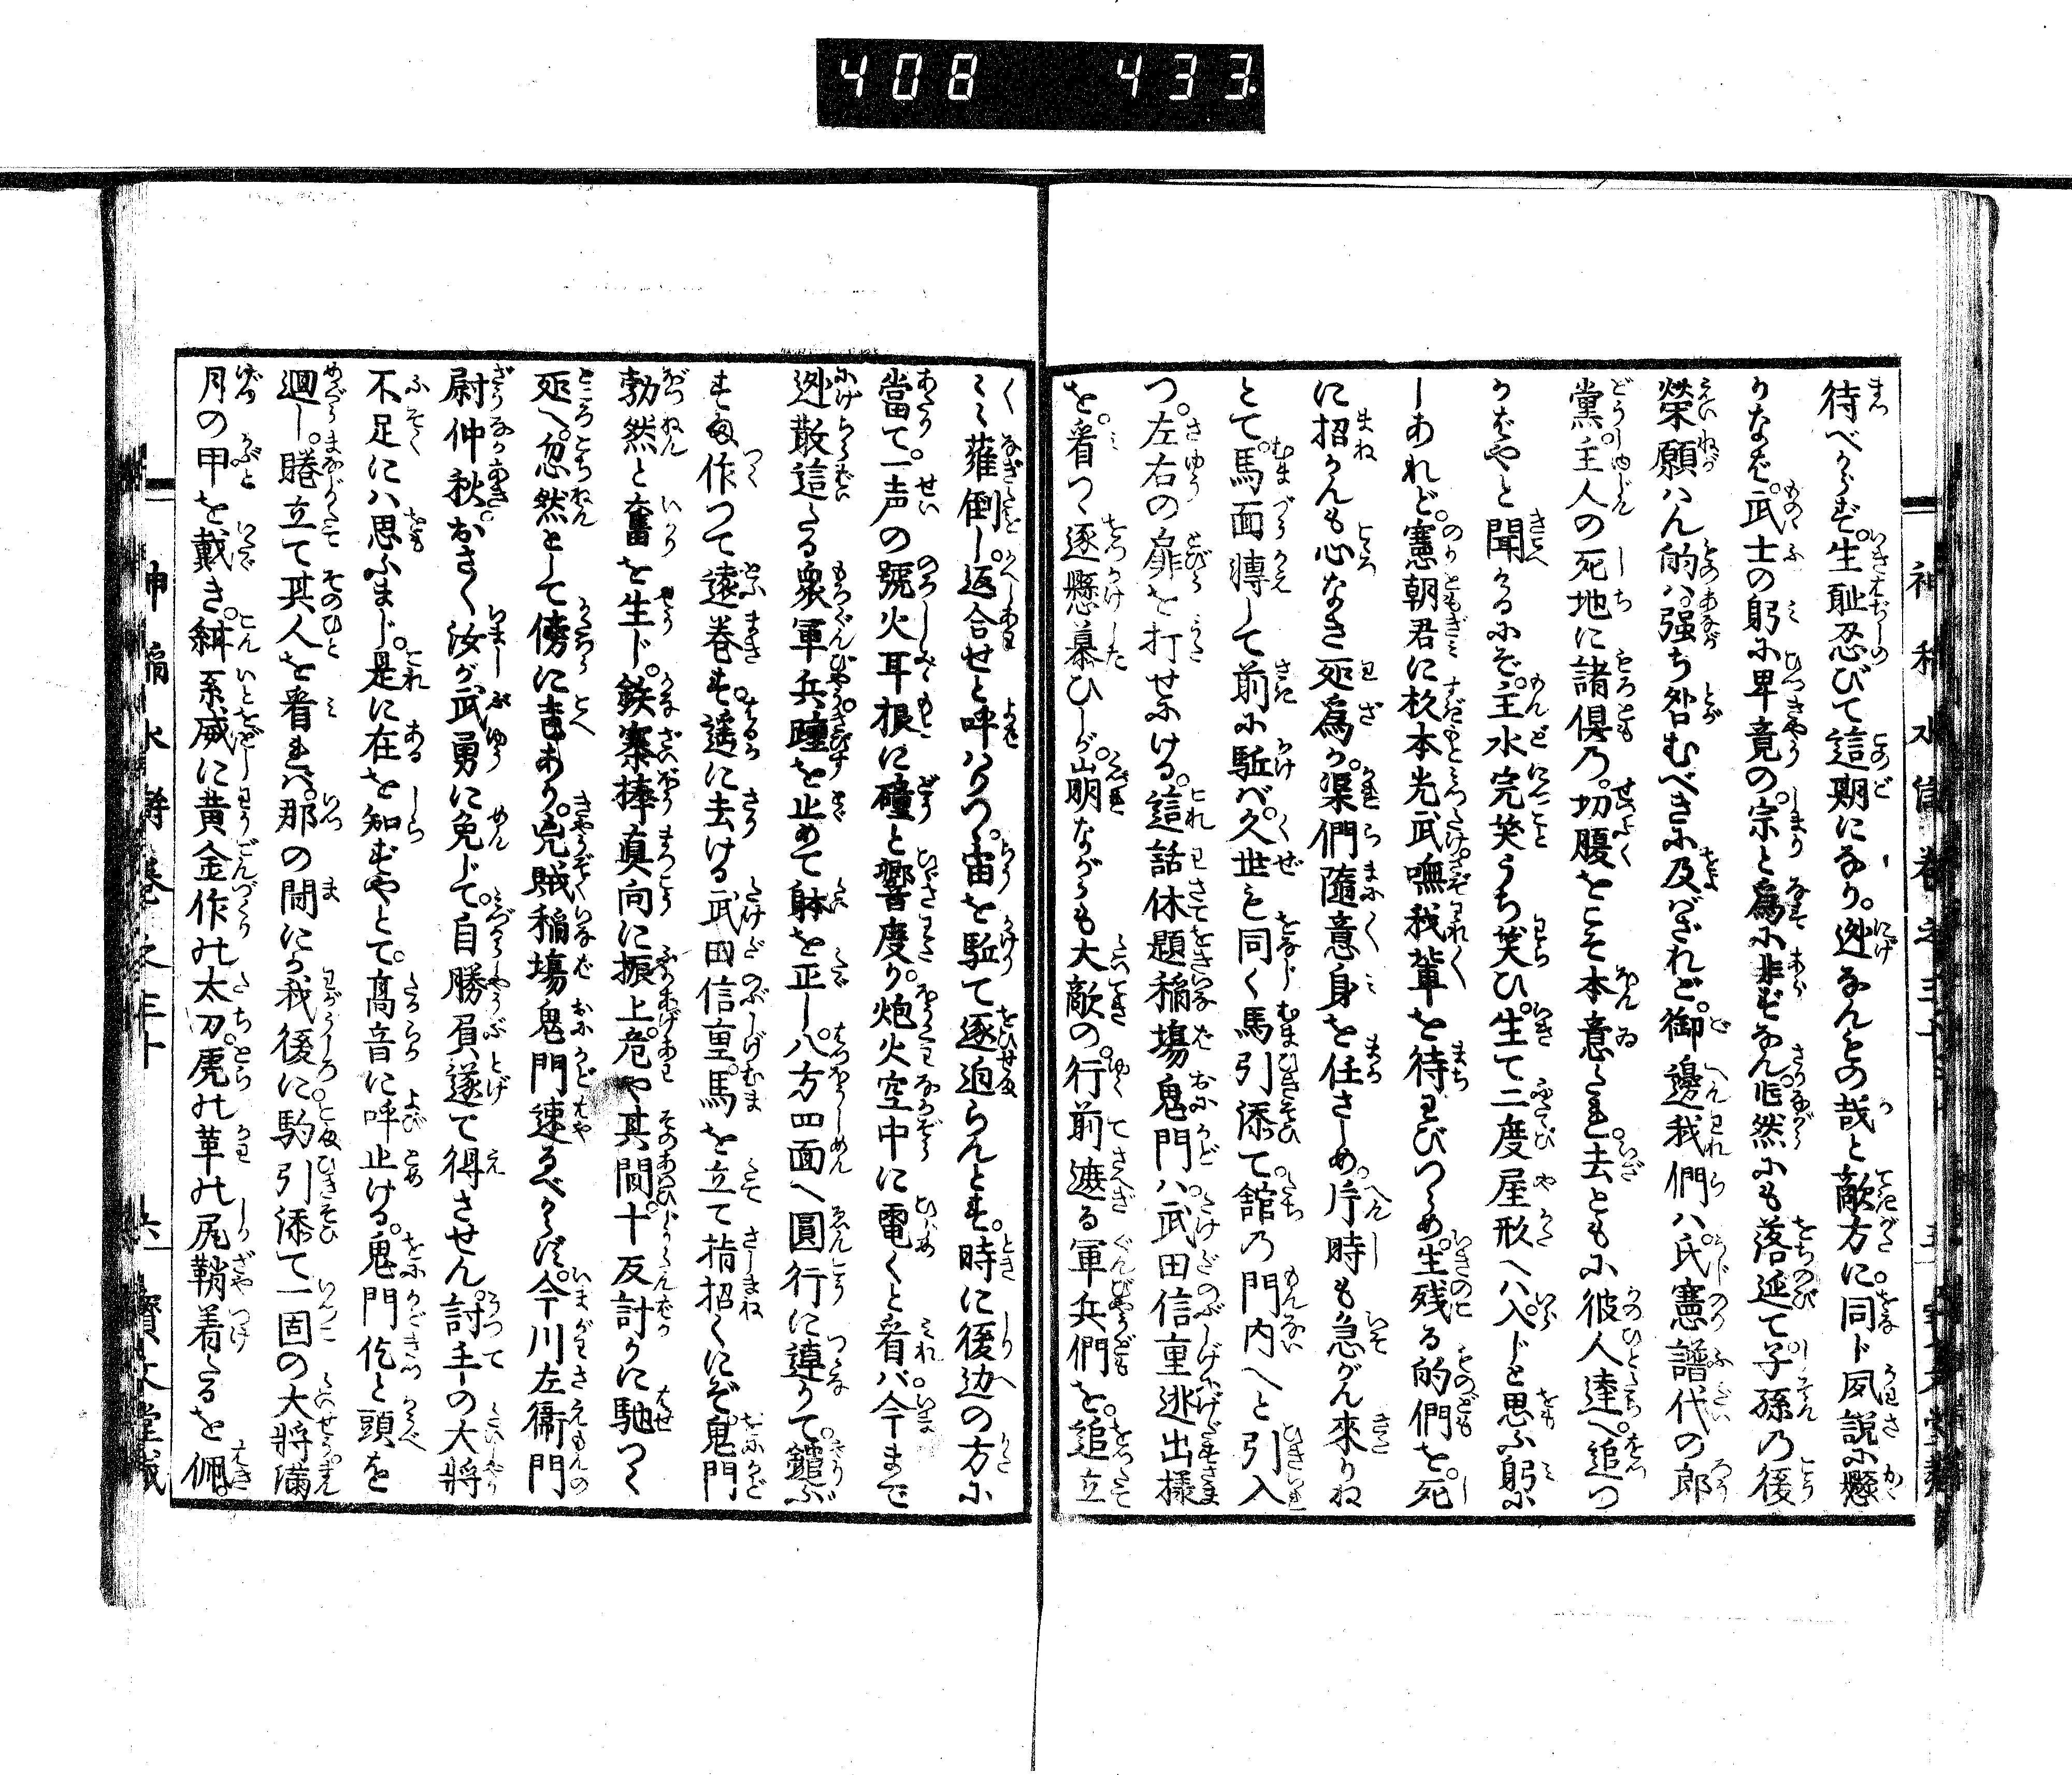 408 433
待べからず。生耻忍びて這期になり。迯なんとの哉と敵方に。同ド風説に懸
りなば。武士の躬に畢竟の。宗と爲に非ずなん。尓然にも落延て子孫の後
榮願はん的は。强ち咎むべきに及ばざれど。御邊我們ハ。氏憲譜代の郎
黨。主人の死地に諸倶乃。切腹をこそ本意たれ。去ともに彼人達へ。追つ
かばやと聞ゆるにぞ。主水完笑うち笑ひ。生て二度屋形へハ。入じと思ふ躬に
しあれど。憲朝君に杉本光武嘸我輩を待わびつらめ。生残る的們を。死
に招かんも心なき𫝶爲か。渠們隨意身を任さしめ。片時も急がん來りね
とて。馬面轉して前に駈バ。久世も同く馬引添て館乃門内へと引入
つ。左右の扉を打せにける。這話休題稲塲鬼門ハ。武田信重逃出樣
を。看つゝ逐懸慕ひしが。山明ながらも大敵の。行前遮る軍兵們を。追立
く薙倒し。返合せと呼はりつゝ。宙を駈て逐迫らんとす。時に後辺の方に
當て。一声の號火耳根に。礑と響度り。炮火空中に電くと看バ。今まで
迯散這たる衆軍兵。踵を止めて躰を正し。八方四面へ圓行に連りて。鑓ぶ
すま作つて遠巻す。遥に去ける武田信重。馬を立て指招くにぞ。鬼門
勃然と奮を生じ。鉄寨捧真向に振上。危や其間。十反計りに馳つく
𫝶へ。忽然として傍に声あり。兇賊稲塲鬼門速るべからず。今川左衞門
尉仲秋。おさく汝が武勇に免じて。自勝屓遂て得させん。討手の大將
不足にハ思ふまじ。是に在を知ずやとて。髙音に呼止ける。鬼門佗と頭を
廻し。睠立て其人を看れば。那の間にか我後に。駒引添て一固の大將。滿
月の甲を戴き。緋糸威に黄金作の太刀。虎の革の尻鞘着たるを佩。